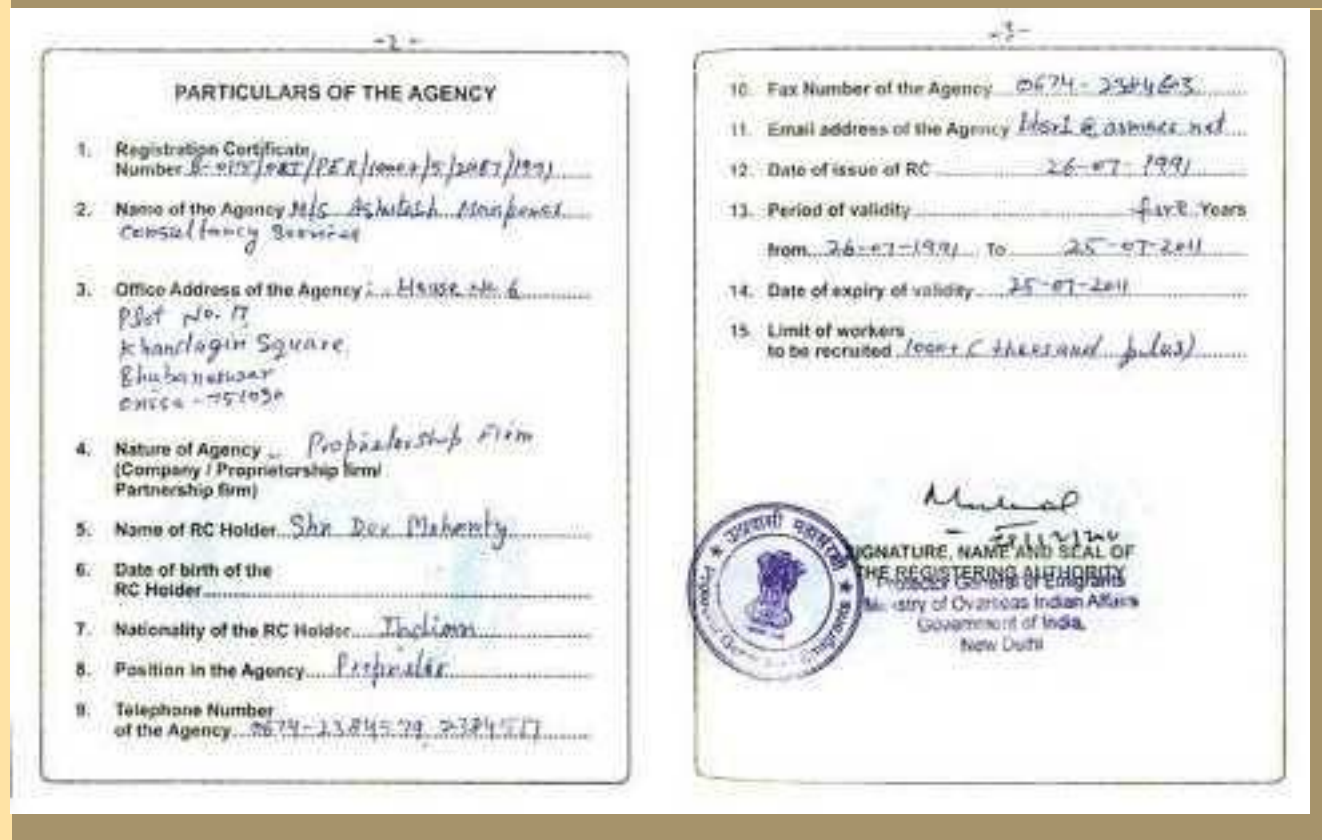 -2-
PARTICULARS OF THE AGENCY
1. Registration Certificate
Number /PER/1000+/5/2087/1991
2. Name of the Agency M/S Ashutosh Manpower
Consultancy Services
3. Office Address of the Agency: House No. 6
Plot No. 17
Khandagiri Square,
Bhubaneswar
Orissa - 751030
4. Nature of Agency Proprietorship Firm
(Company / Proprietorship firm/
Partnership firm)
5. Name of RC Holder Shri Dev Mohanty
6. Date of birth of the
RC Holder
7. Nationality of the RC Holder Indian
8. Position in the Agency Proprietor
9. Telephone Number
of the Agency 0674-2384579, 2384517
-3-
10. Fax Number of the Agency 0674-2384603
11. Email address of the Agency
12. Date of issue of RC 26-07-1991
13. Period of validity five Years
from 26-07-1991 To 25-07-2011
14. Date of expiry of validity 25-07-2011
15. Limit of workers
to be recruited 1000+ (thousand plus)
SIGNATURE, NAME AND SEAL OF
THE REGISTERING AUTHORITY
Protector General of Emigrants
Ministry of Overseas Indian Affairs
Government of India,
New Delhi
उत्प्रवासी महासंरक्षी
Protector General of Emigrants